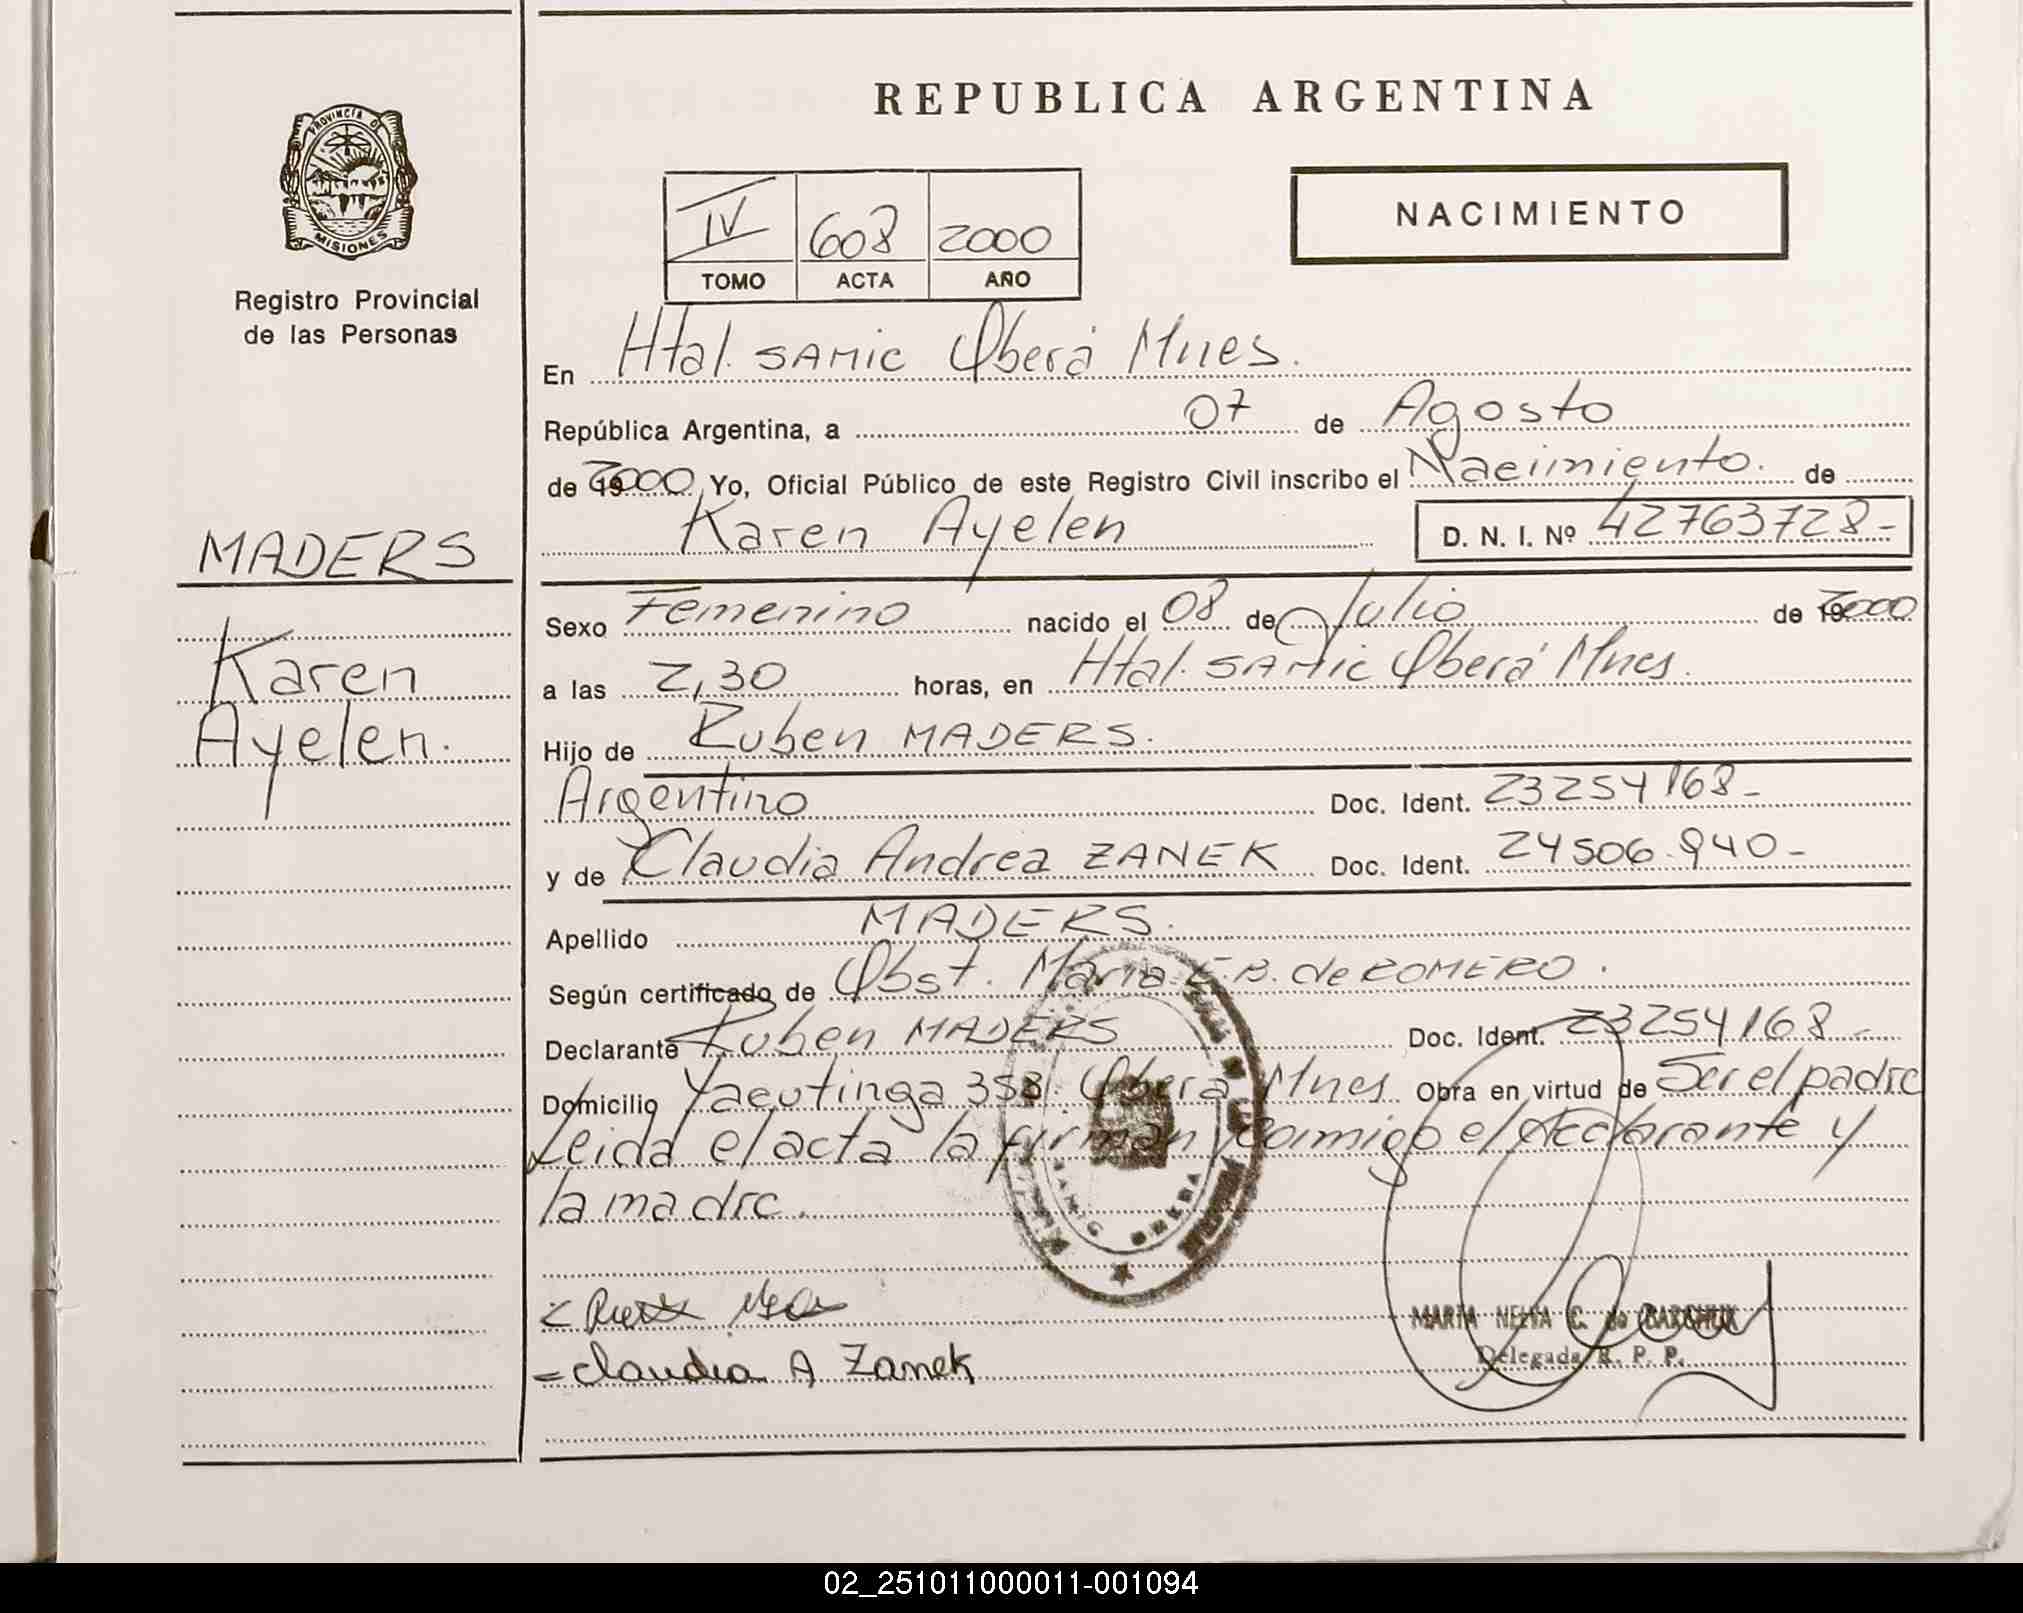 REPUBLICA ARGENTINA
PROVINCIA DE
MISIONES
Registro Provincial
de las Personas
NACIMIENTO
IV 608 2000
TOMO ACTA AÑO
En Htal. SAMIC Oberá Mnes.
República Argentina, a 07 de Agosto
de 2000 Yo, Oficial Público de este Registro Civil inscribo el Nacimiento. de
Karen Ayelen D. N. I. Nº 42763728-
MADERS
Karen
Ayelen.
Sexo Femenino nacido el 08 de Julio de 2000
a las 2,30 horas, en Htal. SAMIC Oberá Mnes.
Hijo de Ruben MADERS.
Argentino Doc. Ident. 23254168-
y de Claudia Andrea ZANEK Doc. Ident. 24506.940-
Apellido MADERS.
Según certificado de Obst. Maria E.B. de ROMERO.
Declarante Ruben MADERS Doc. Ident. 23254168-
Domicilio Yacutinga 358. Oberá Mnes Obra en virtud de Ser el padre
Leida el acta la firman conmigo el declarante y
la madre.
SAMIC OBERA
Claudia A Zanek
MARIA NELVA C. de
Delegada R. P. P.
02_251011000011-001094